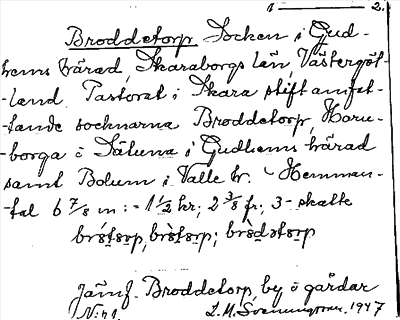 1 — 2.
Broddetorp Socken i Gud-
hems härad, Skaraborgs län, Västergöt-
-land. Pastorat i Skara stift omfat-
-tande socknarna Broddetorp, Horn-
-borga o Sätuna i Gudhems härad
samt Bolum i Valle hd. Hemman-
-tal 6 7/8 m: - 1 1/2 kr; 2 3/8 fr; 3 - skatte
Jämf. Broddetorp, by o gårdar
N:r 1.
1947